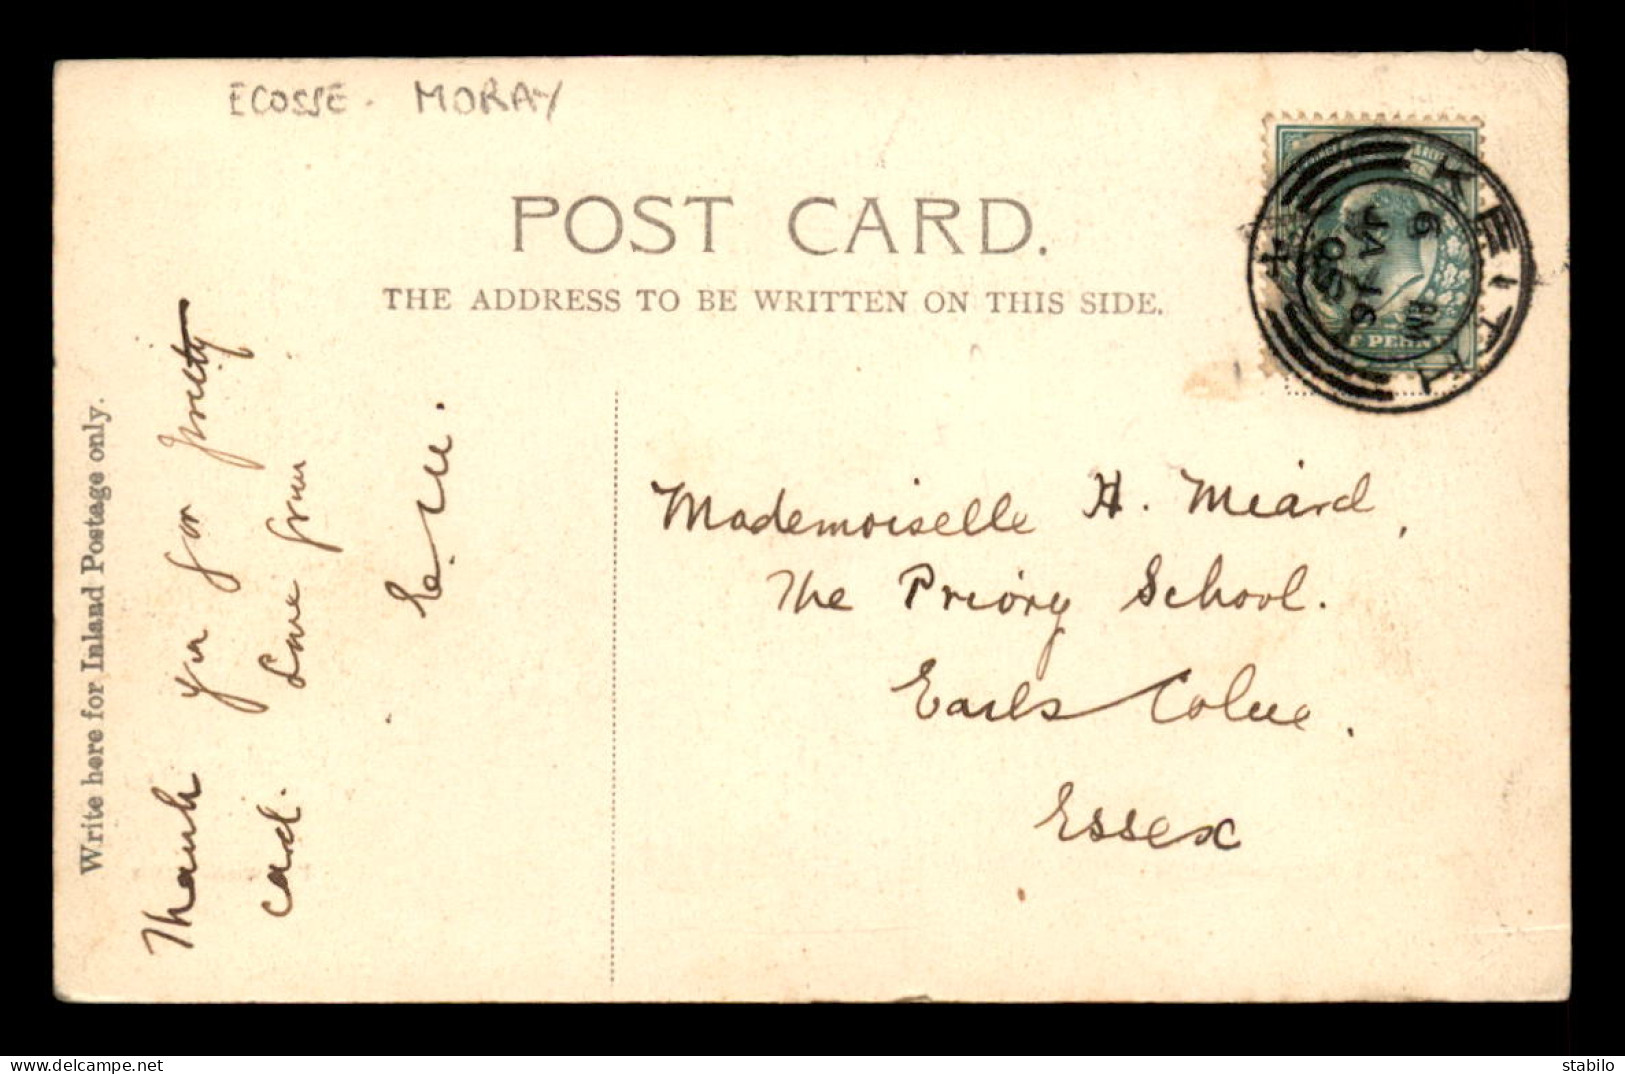 ECOSSE. MORAY
POST CARD.
THE ADDRESS TO BE WRITTEN ON THIS SIDE.
Write here for Inland Postage only.
Thank you for pretty
card. Love from
KEITH
6 PM
JA 16
05
Mademoiselle H. Méard,
The Priory School.
Earls Colne.
Essex
delcampe.net
stabilo